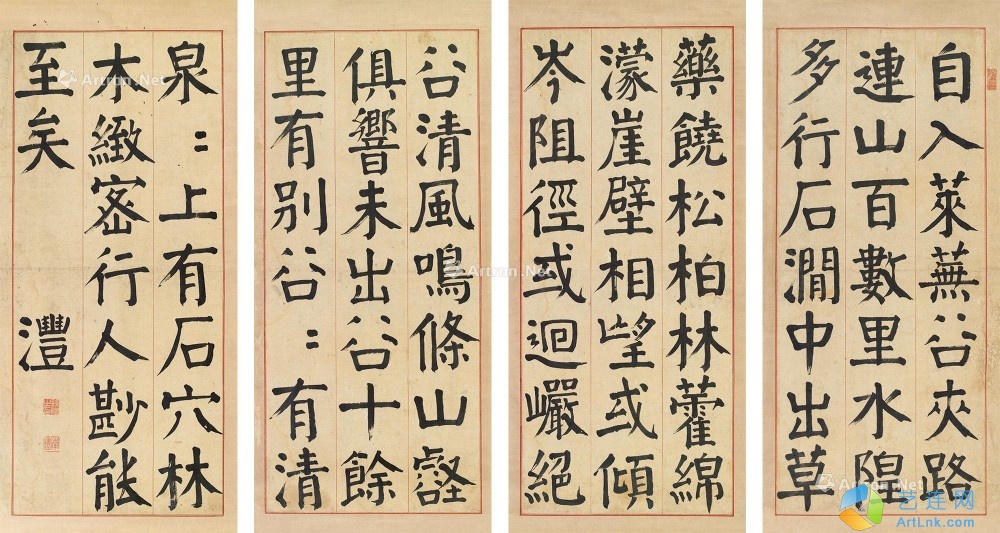 自入萊蕪谷夾路
連山百數里水隍
多行石澗中出草
藥饒松柏林藿綿
濛崖壁相望或傾
岑阻徑或迴巖絕
谷清風鳴條山壑
俱響未出谷十餘
里有別谷〻有清
泉〻上有石穴林
木緻密行人尠能
至矣 灃
Artron.Net
Artron.Net
Artron.Net
艺连网
ArtLnk.com